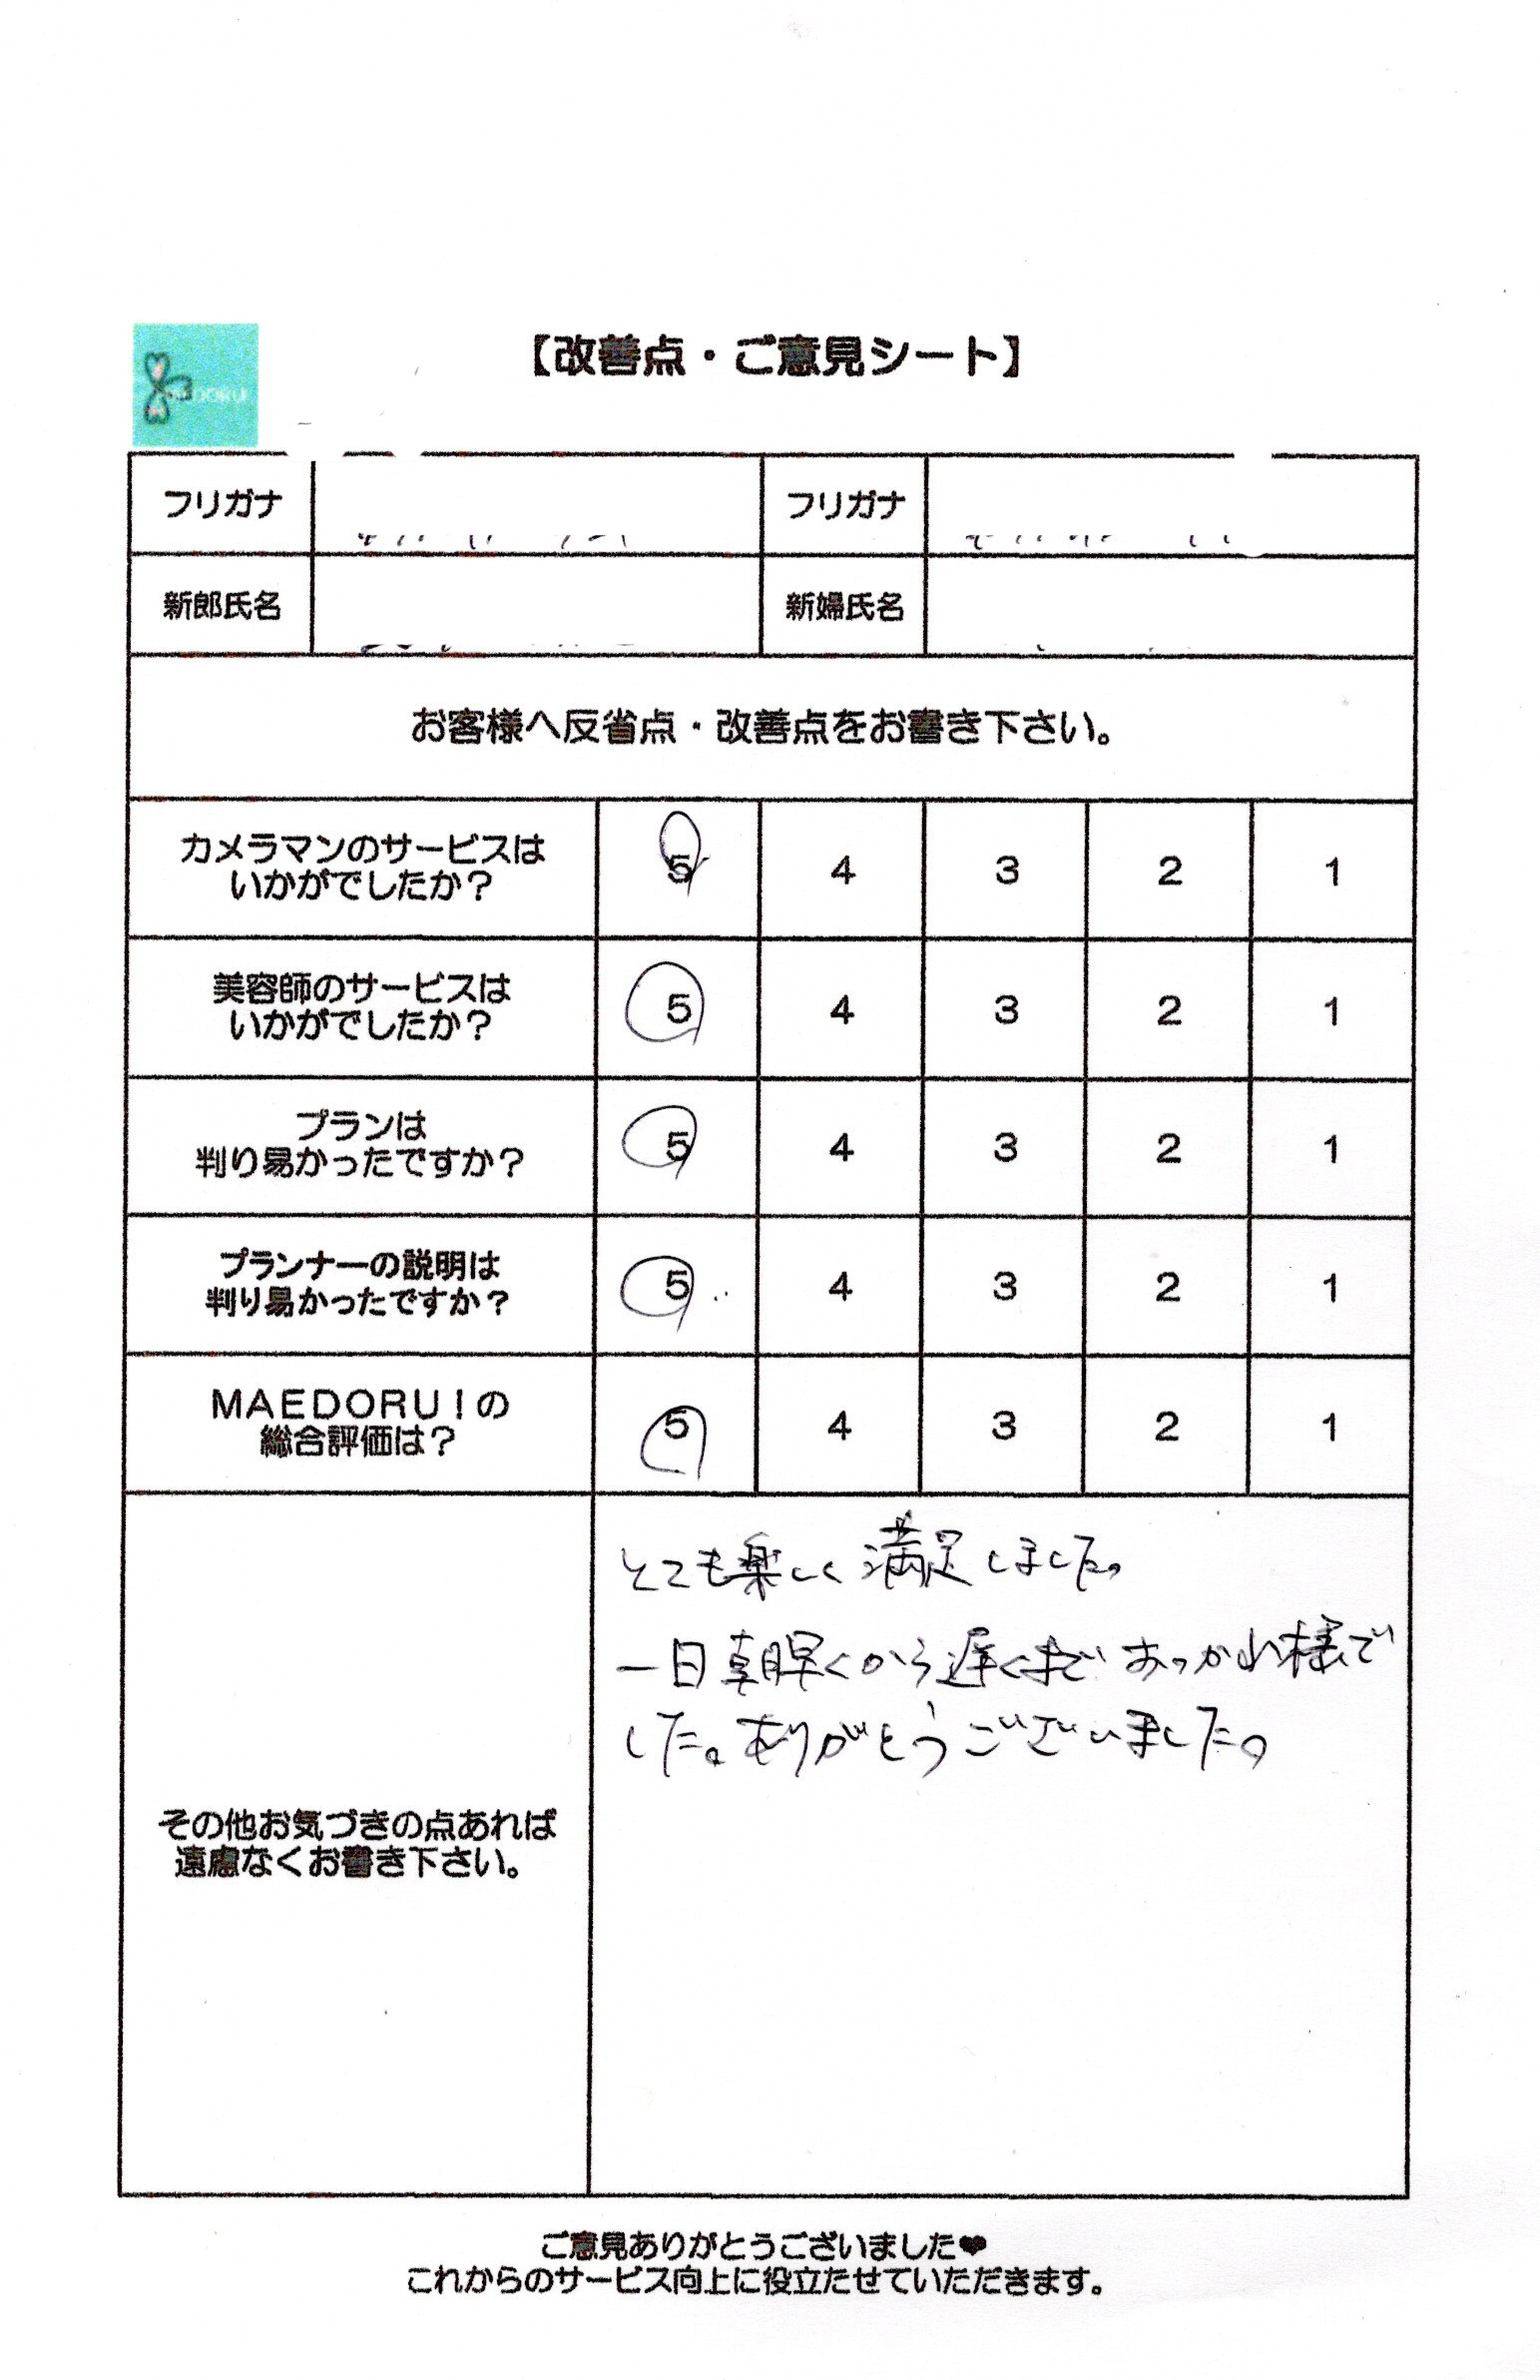 【改善点・ご意見シート】
フリガナ フリガナ
新郎氏名 新婦氏名
お客様へ反省点・改善点をお書き下さい。
カメラマンのサービスは
いかがでしたか？ 5 4 3 2 1
美容師のサービスは
いかがでしたか？ 5 4 3 2 1
プランは
判り易かったですか？ 5 4 3 2 1
プランナーの説明は
判り易かったですか？ 5 4 3 2 1
ＭＡＥＤＯＲＵ！の
総合評価は？ 5 4 3 2 1
その他お気づきの点あれば
遠慮なくお書き下さい。
とても楽しく満足しました。
一日朝早くから遅くまでおつかれ様で
した。ありがとうございました。
ご意見ありがとうございました❤
これからのサービス向上に役立たせていただきます。